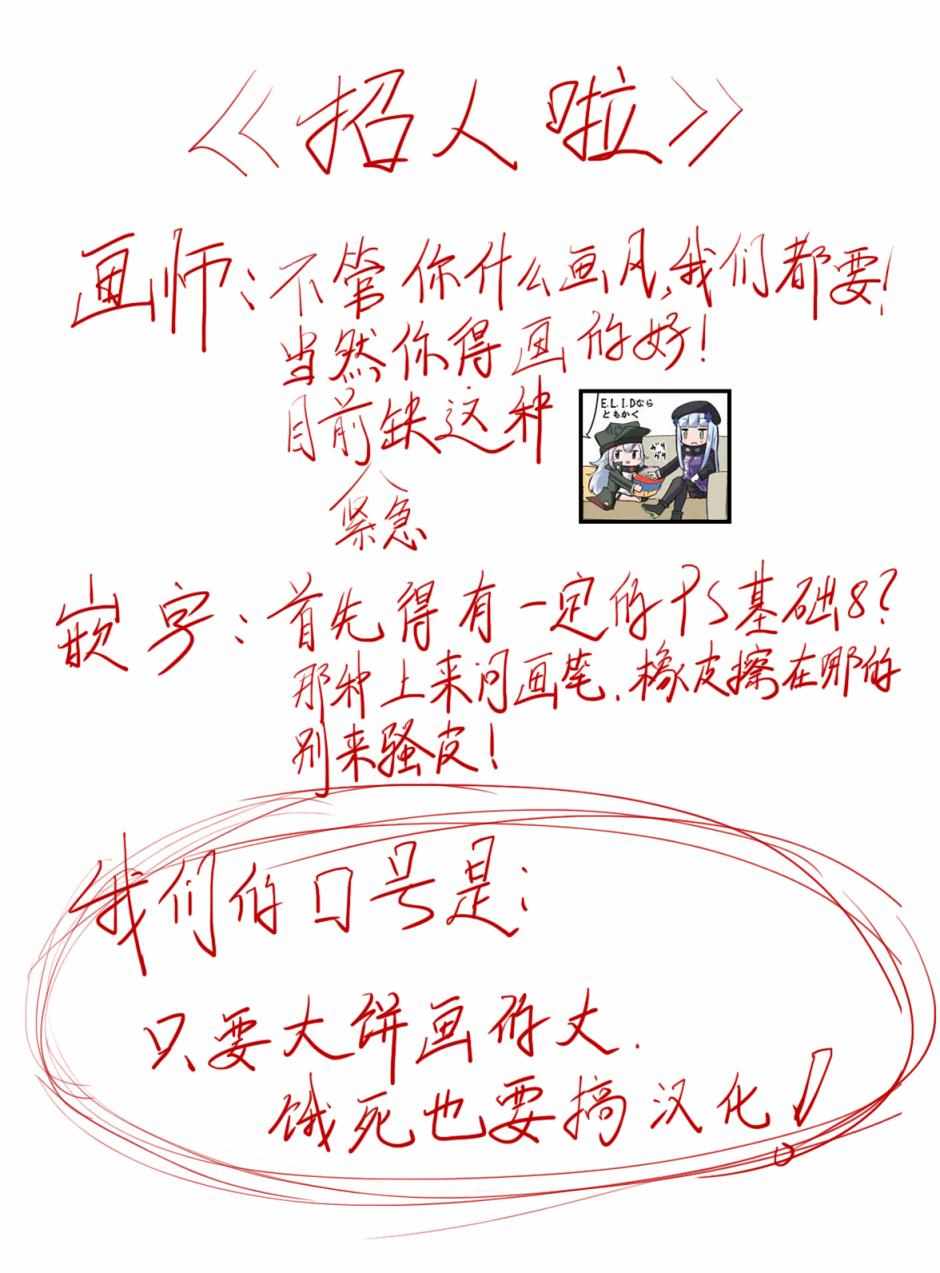 《招人啦》
画师:不管你什么画风,我们都要!
当然你得画的好!
目前缺这种
E.L.I.Dなら
ともかく
紧急
嵌字:首先得有一定的PS基础8?
那种上来问画笔.橡皮擦在哪的
别来骚皮!
我们的口号是:
只要大饼画得大.
饿死也要搞汉化!